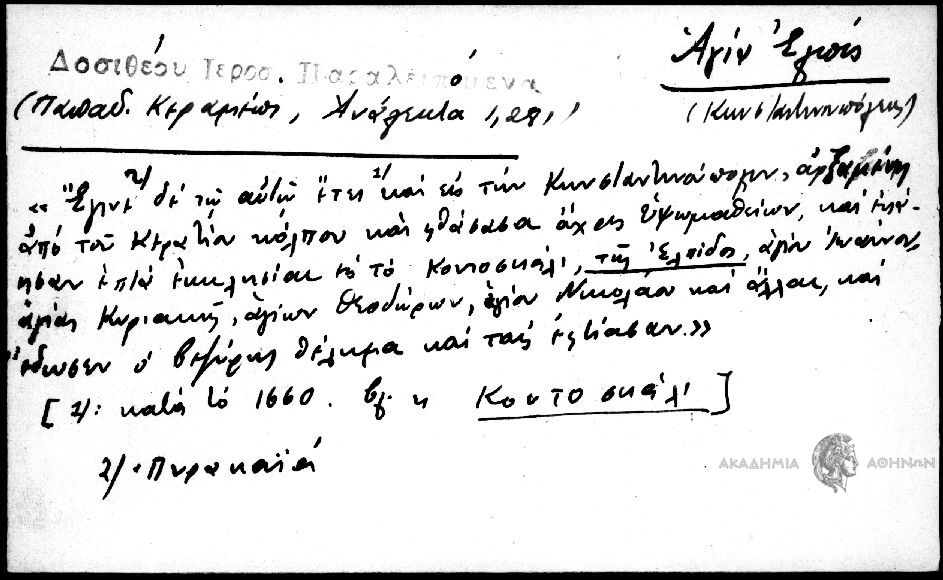 Ἁγία Ἐλπίς
Δοσιθέου Ιεροσ. Παραλειπόμενα
(Παπαδ. Κεραμεύς, Ἀνάλεκτα 1, 281)
(Κωνσταντινουπόλεως)
« Ἔγινε 2) δέ τῷ αὐτῷ ἔτει 1) καί εἰς τήν Κωνσταντινούπολιν, ἀρξαμένη
ἀπό τοῦ Κερατίου κόλπου καί φθάσασα ἄχρις Ὑψωμαθείων, καί ἐκαύ-
θησαν ἑπτά ἐκκλησίαι εἰς τό Κοντοσκάλι, τῆς Ἐλπίδος, ἁγίου Ἰωάννου
ἁγίας Κυριακῆς, ἁγίων Θεοδώρων, ἁγίου Νικολάου καί ἄλλαι, καί
ἔδωσεν ὁ βεζύρης θέλημα καί ταῖς ἔκτισαν.»
[1): κατά τό 1660. βλ. κ Κοντοσκάλι]
2) · Πυρακαϊά
ΑΚΑΔΗΜΙΑ ΑΘΗΝΩΝ